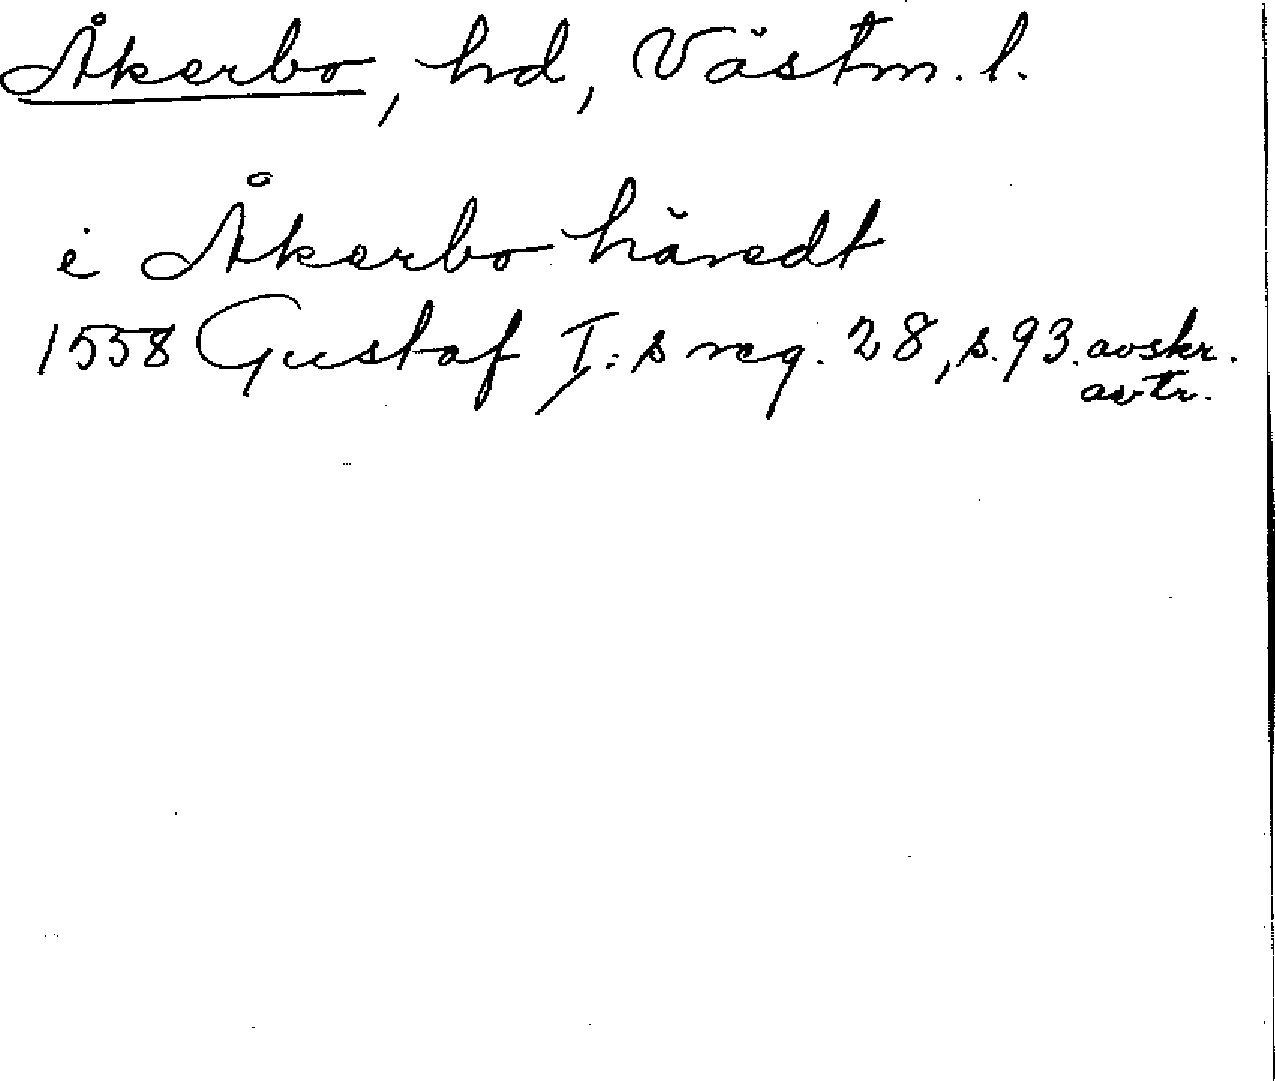 Åkerbo, hd, Västm. l.
i Åkerbo häredt
1558 Gustaf I:s reg. 28, s. 93. avskr.
avtr.